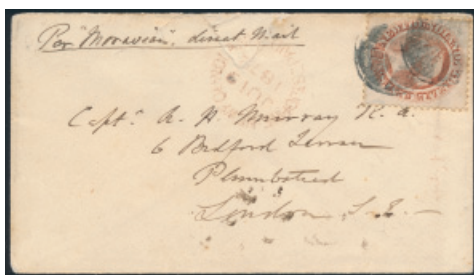 Per "Moravian", direct Mail
Capt. A. H. Murray R. A.
6 Bedford Terrace
Plumbstead
London S. E.